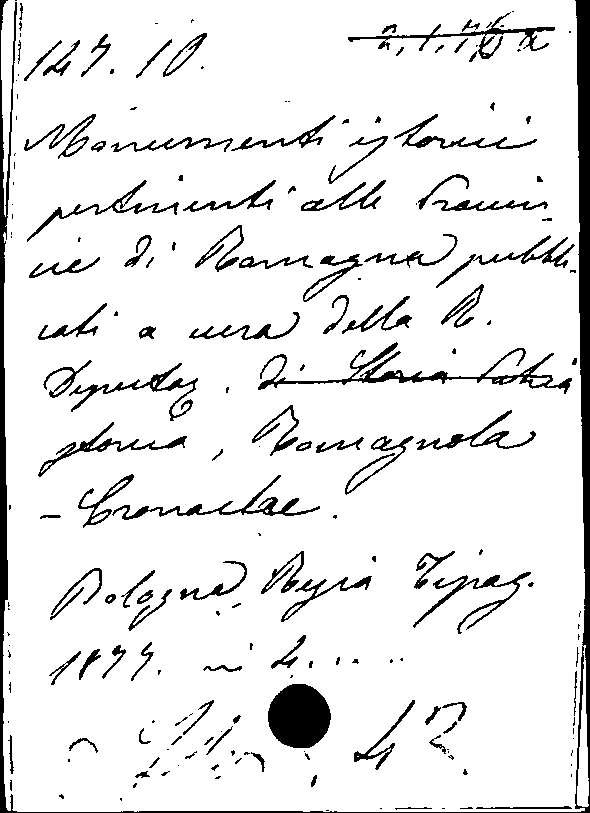 127. 10.
2, 1, 7, 6 a
Monumenti istorici
pertinenti alle Provin-
cie di Romagna pubbli-
cati a cura della R.
Deputaz. di Storia Patria
storia, Romagnola
- Cronache.
Bologna, Regia Tipog.
1877. in 4.....
42